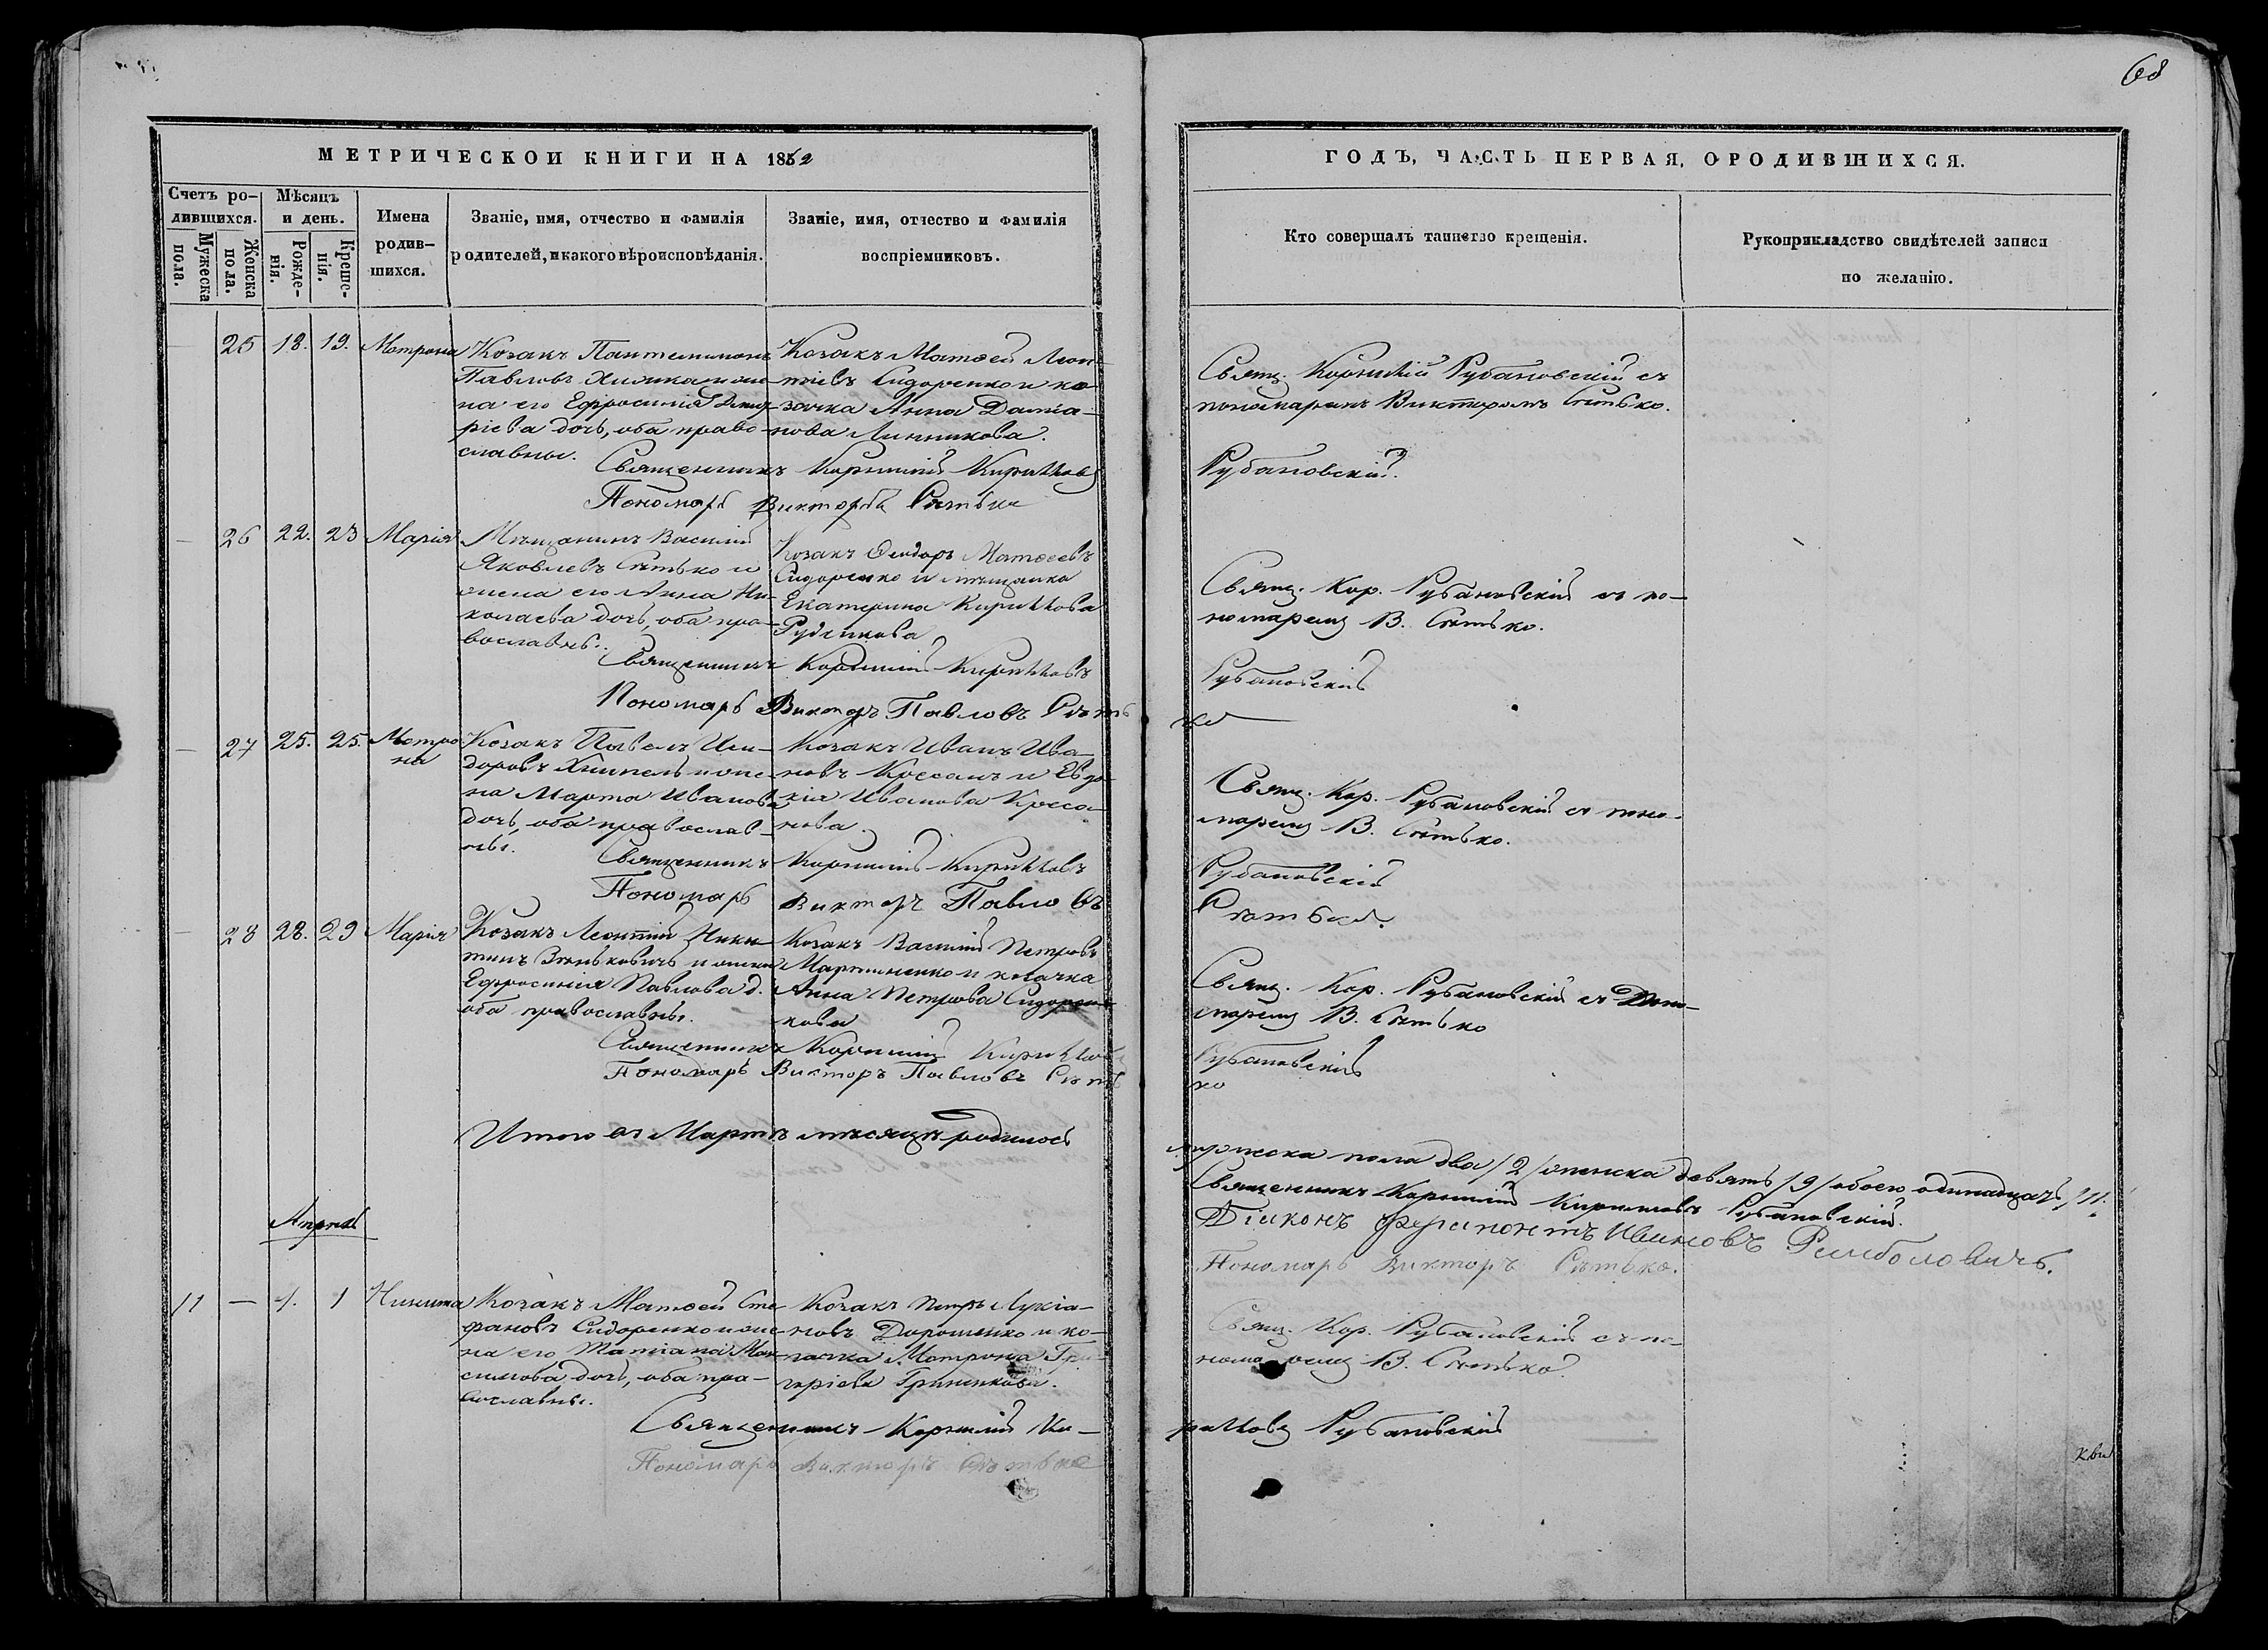 68
МЕТРИЧЕСКОЙ КНИГИ НА 1862
ГОДЪ, ЧАСТЬ ПЕРВАЯ, О РОДИВШИХСЯ.
Счетъ ро-
дившихся.
Мужеска
пола.
Женска
пола.
Мѣсяцъ
и день.
Рожде-
нія.
Креще-
нія.
Имена
родив-
шихся.
Званіе, имя, отчество и фамилія
родителей, и какого вѣроисповѣданія.
Званіе, имя, отчество и фамилія
воспріемниковъ.
Кто совершалъ таинство крещенія.
Рукоприкладство свидѣтелей записи
по желанію.
— 25 18. 19. Матрона
Козакъ Пантелимонъ
Павловъ и же-
на его Ефросинія
ріева дочь, оба право-
славны.
Козакъ Матѳей Леон-
тіевъ Сидоренко и ко-
зачка Анна Даміа-
нова Линникова.
Свящ. Корнилій Рубановскій съ
пономаремъ Викторомъ Сѣтько.
Священникъ Корнилій Кирилловъ
Рубановскій.
Пономарь Викторъ Сѣтько
— 26 22. 23 Марія
Мѣщанинъ Василій
Яковлевъ Сѣтько и
жена его Анна Ни-
колаева дочь, оба пра-
вославны.
Козакъ Ѳеодоръ Матѳеевъ
Сидоренко и мѣщанка
Екатерина Кириллова
Рудикова
Свящ. Кор. Рубановскій съ по-
номаремъ В. Сѣтько.
Священникъ Корнилій Кирилловъ
Рубановскій
Пономарь Викторъ Павловъ Сѣть
ко
— 27 25. 25. Матро-
на
Козакъ Павелъ Иси-
доровъ и же-
на Марта Иванова
дочь, оба православ-
ны.
Козакъ Иванъ Ива-
новъ и Евдо-
кія Иванова Креса-
нова.
Свящ. Кор. Рубановскій съ поно-
маремъ В. Сѣтько.
Священникъ Корнилій Кирилловъ
Рубановскій
Пономарь Викторъ Павловъ
Сѣтько.
— 28 28. 29 Марія
Козакъ Леонтій Ники-
тинъ Зѣньковичъ и жена
Ефросинія Павлова д.
оба православны.
Козакъ Василій Петровъ
Мартиненко и козачка
Анна Петрова Сидорен-
кова
Свящ. Кор. Рубановскій съ Поно-
маремъ В. Сѣтько
Священникъ Корнилій Кирилловъ
Рубановскій
Пономарь Викторъ Павловъ Сѣть
ко
Итого въ Мартѣ мѣсяцѣ родилось
мужеска пола два /2/ женска девять /9/ обоего одинадцать /11/.
Священникъ Корнилій Кирилловъ Рубановскій.
Діаконъ Ферапонтъ Ивановъ
Пономарь Викторъ Сѣтько.
Апрѣль
11 — 1. 1 Никита
Козакъ Матѳей Сте-
фановъ Сидоренко и же-
на его Татіана Мак-
симова дочь, оба пра-
вославны.
Козакъ Петръ Лукіа-
новъ Дорошенко и ко-
зачка Матрона Гри-
горіева Гриненкова.
Свящ. Кор. Рубановскій съ по-
номаремъ В. Сѣтько.
Священникъ Корнилій Ки-
рилловъ Рубановскій
Пономарь Викторъ Сѣтько